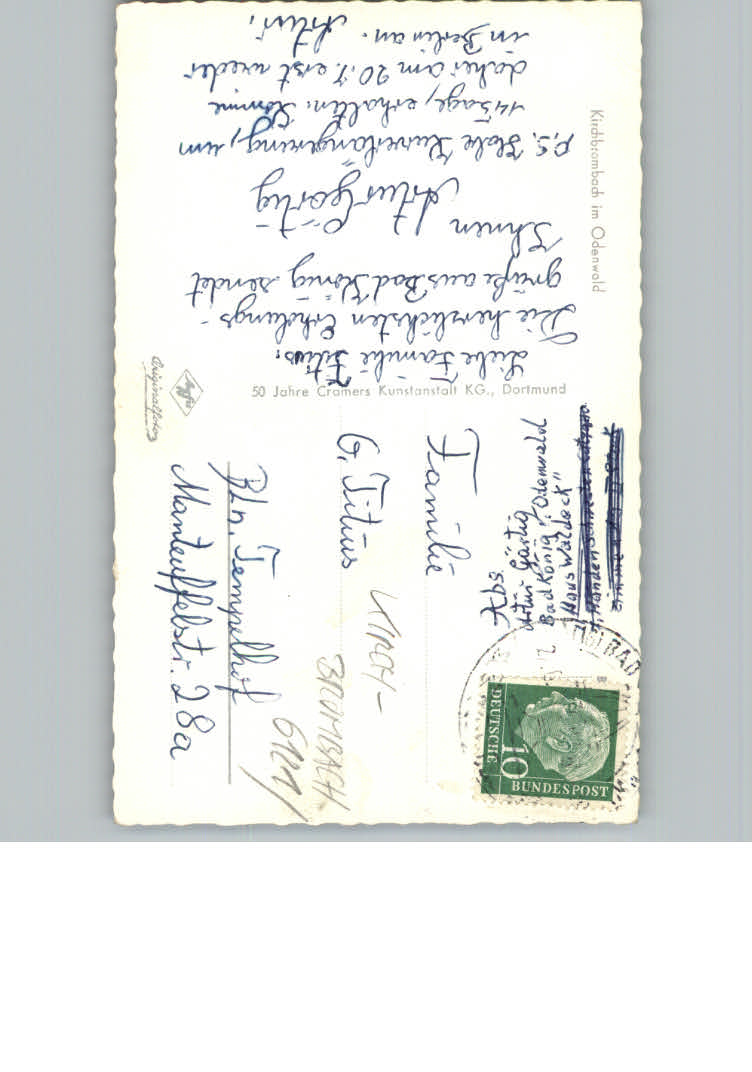 Kirchbrombach im Odenwald
Liebe Familie Titus.
Die herzlichsten Erholungs-
grüße aus Bad König sendet
Ihnen
Artur Gärtig
P.S. Habe Kurverlängerung, um
14 Tage, erhalten. Komme
daher am 20.7. erst wieder
in Berlin an. Artur.
50 Jahre Cramers Kunstanstalt KG., Dortmund
Agfa
Originalfoto
Abs.
Artur Gärtig
Bad König i. Odenwald
"Haus Waldeck"
Familie
G. Titus
Bln. Tempelhof
Manteuffelstr. 28a
KIRCH-
BROMBACH
6121
DEUTSCHE
BUNDESPOST
10
BAD